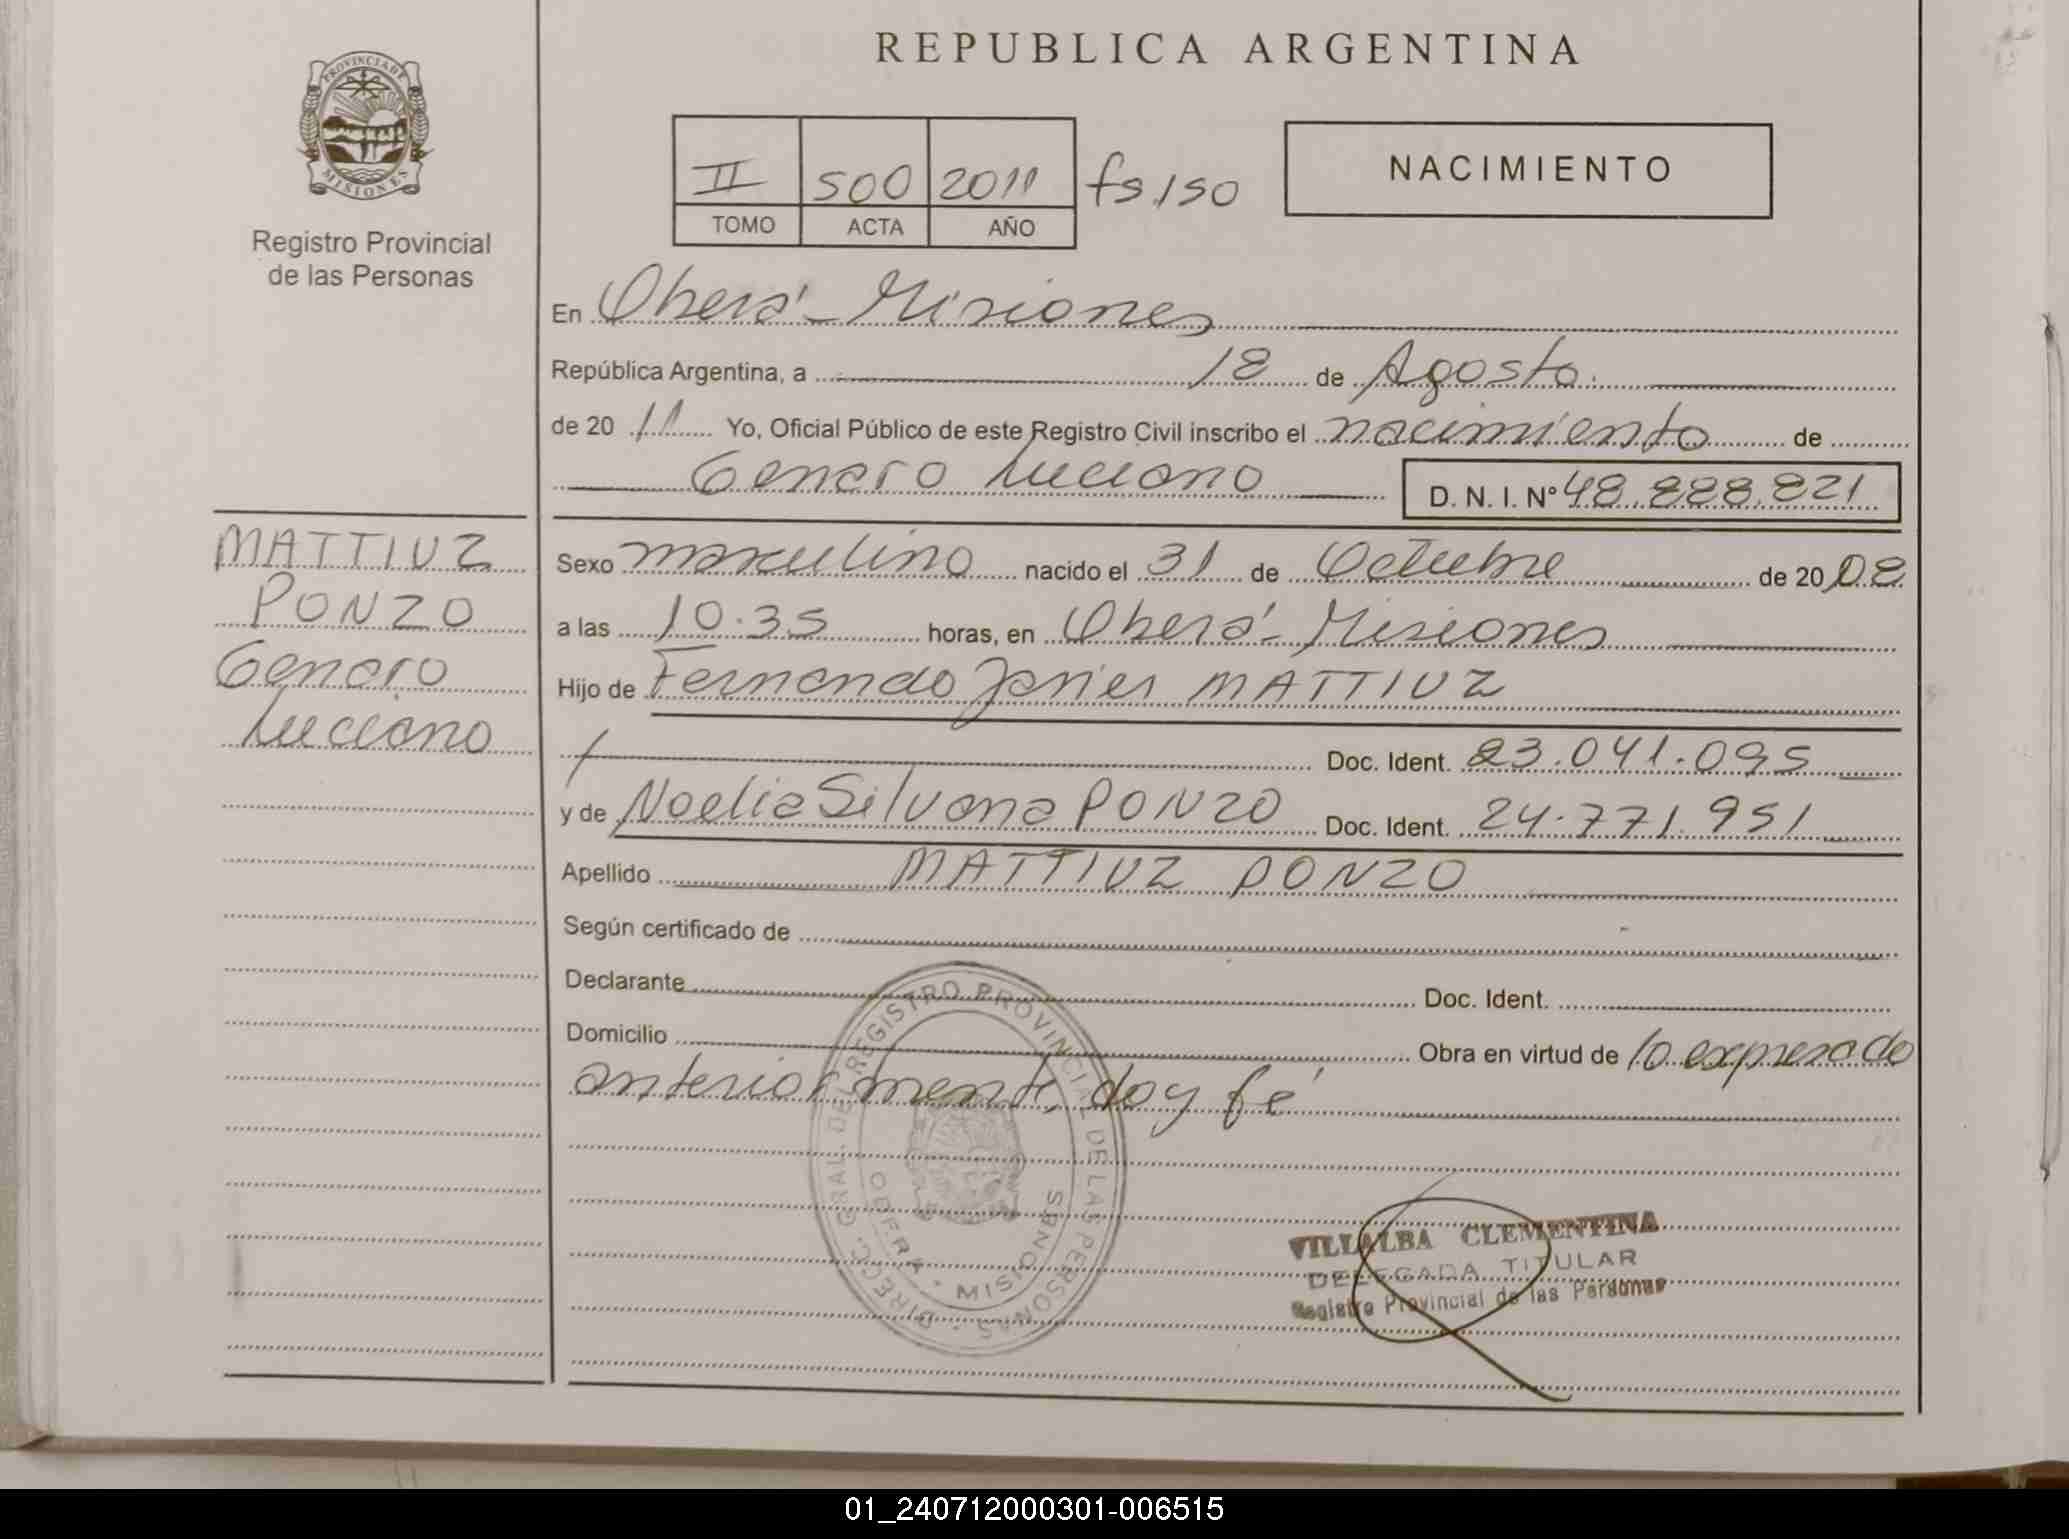 REPUBLICA ARGENTINA
PROVINCIA DE
MISIONES
Registro Provincial
de las Personas
II 500 2011 fs.150
TOMO ACTA AÑO
NACIMIENTO
En Oberá - Misiones
República Argentina, a 18 de Agosto.
de 20 11 Yo, Oficial Público de este Registro Civil inscribo el nacimiento de
Genaro Luciano D. N. I. Nº 48.888.821
MATTIUZ
PONZO
Genaro
Luciano
Sexo masculino nacido el 31 de Octubre de 20 08
a las 10.35 horas, en Oberá - Misiones
Hijo de Fernando Javier MATTIUZ
Doc. Ident. 23.041.095
y de Noelia Silvana PONZO Doc. Ident. 24.771.951
Apellido MATTIUZ PONZO
Según certificado de
Declarante Doc. Ident.
Domicilio Obra en virtud de lo expresado
anteriormente, doy fé
DIRECC. GRAL. DEL REGISTRO PROVINCIAL DE LAS PERSONAS
OBERA - MISIONES
VILLALBA CLEMENTINA
DELEGADA TITULAR
Registro Provincial de las Personas
01_240712000301-006515